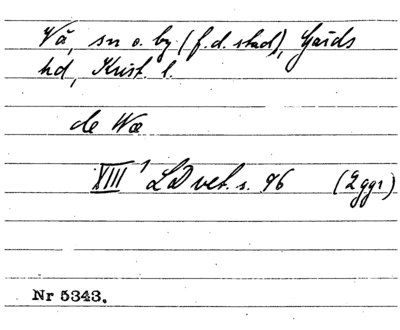 Vä, sn o. by (f.d. stad), Gärds
hd, Krist. l.
de Wæ
XIII¹ LD vet. s. 96 (2 ggr)
Nr 5343.